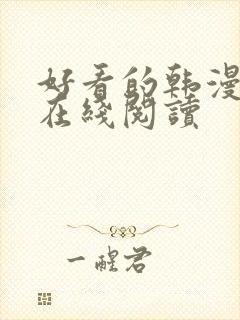 好看的韩漫
在綫閱讀
一醒君